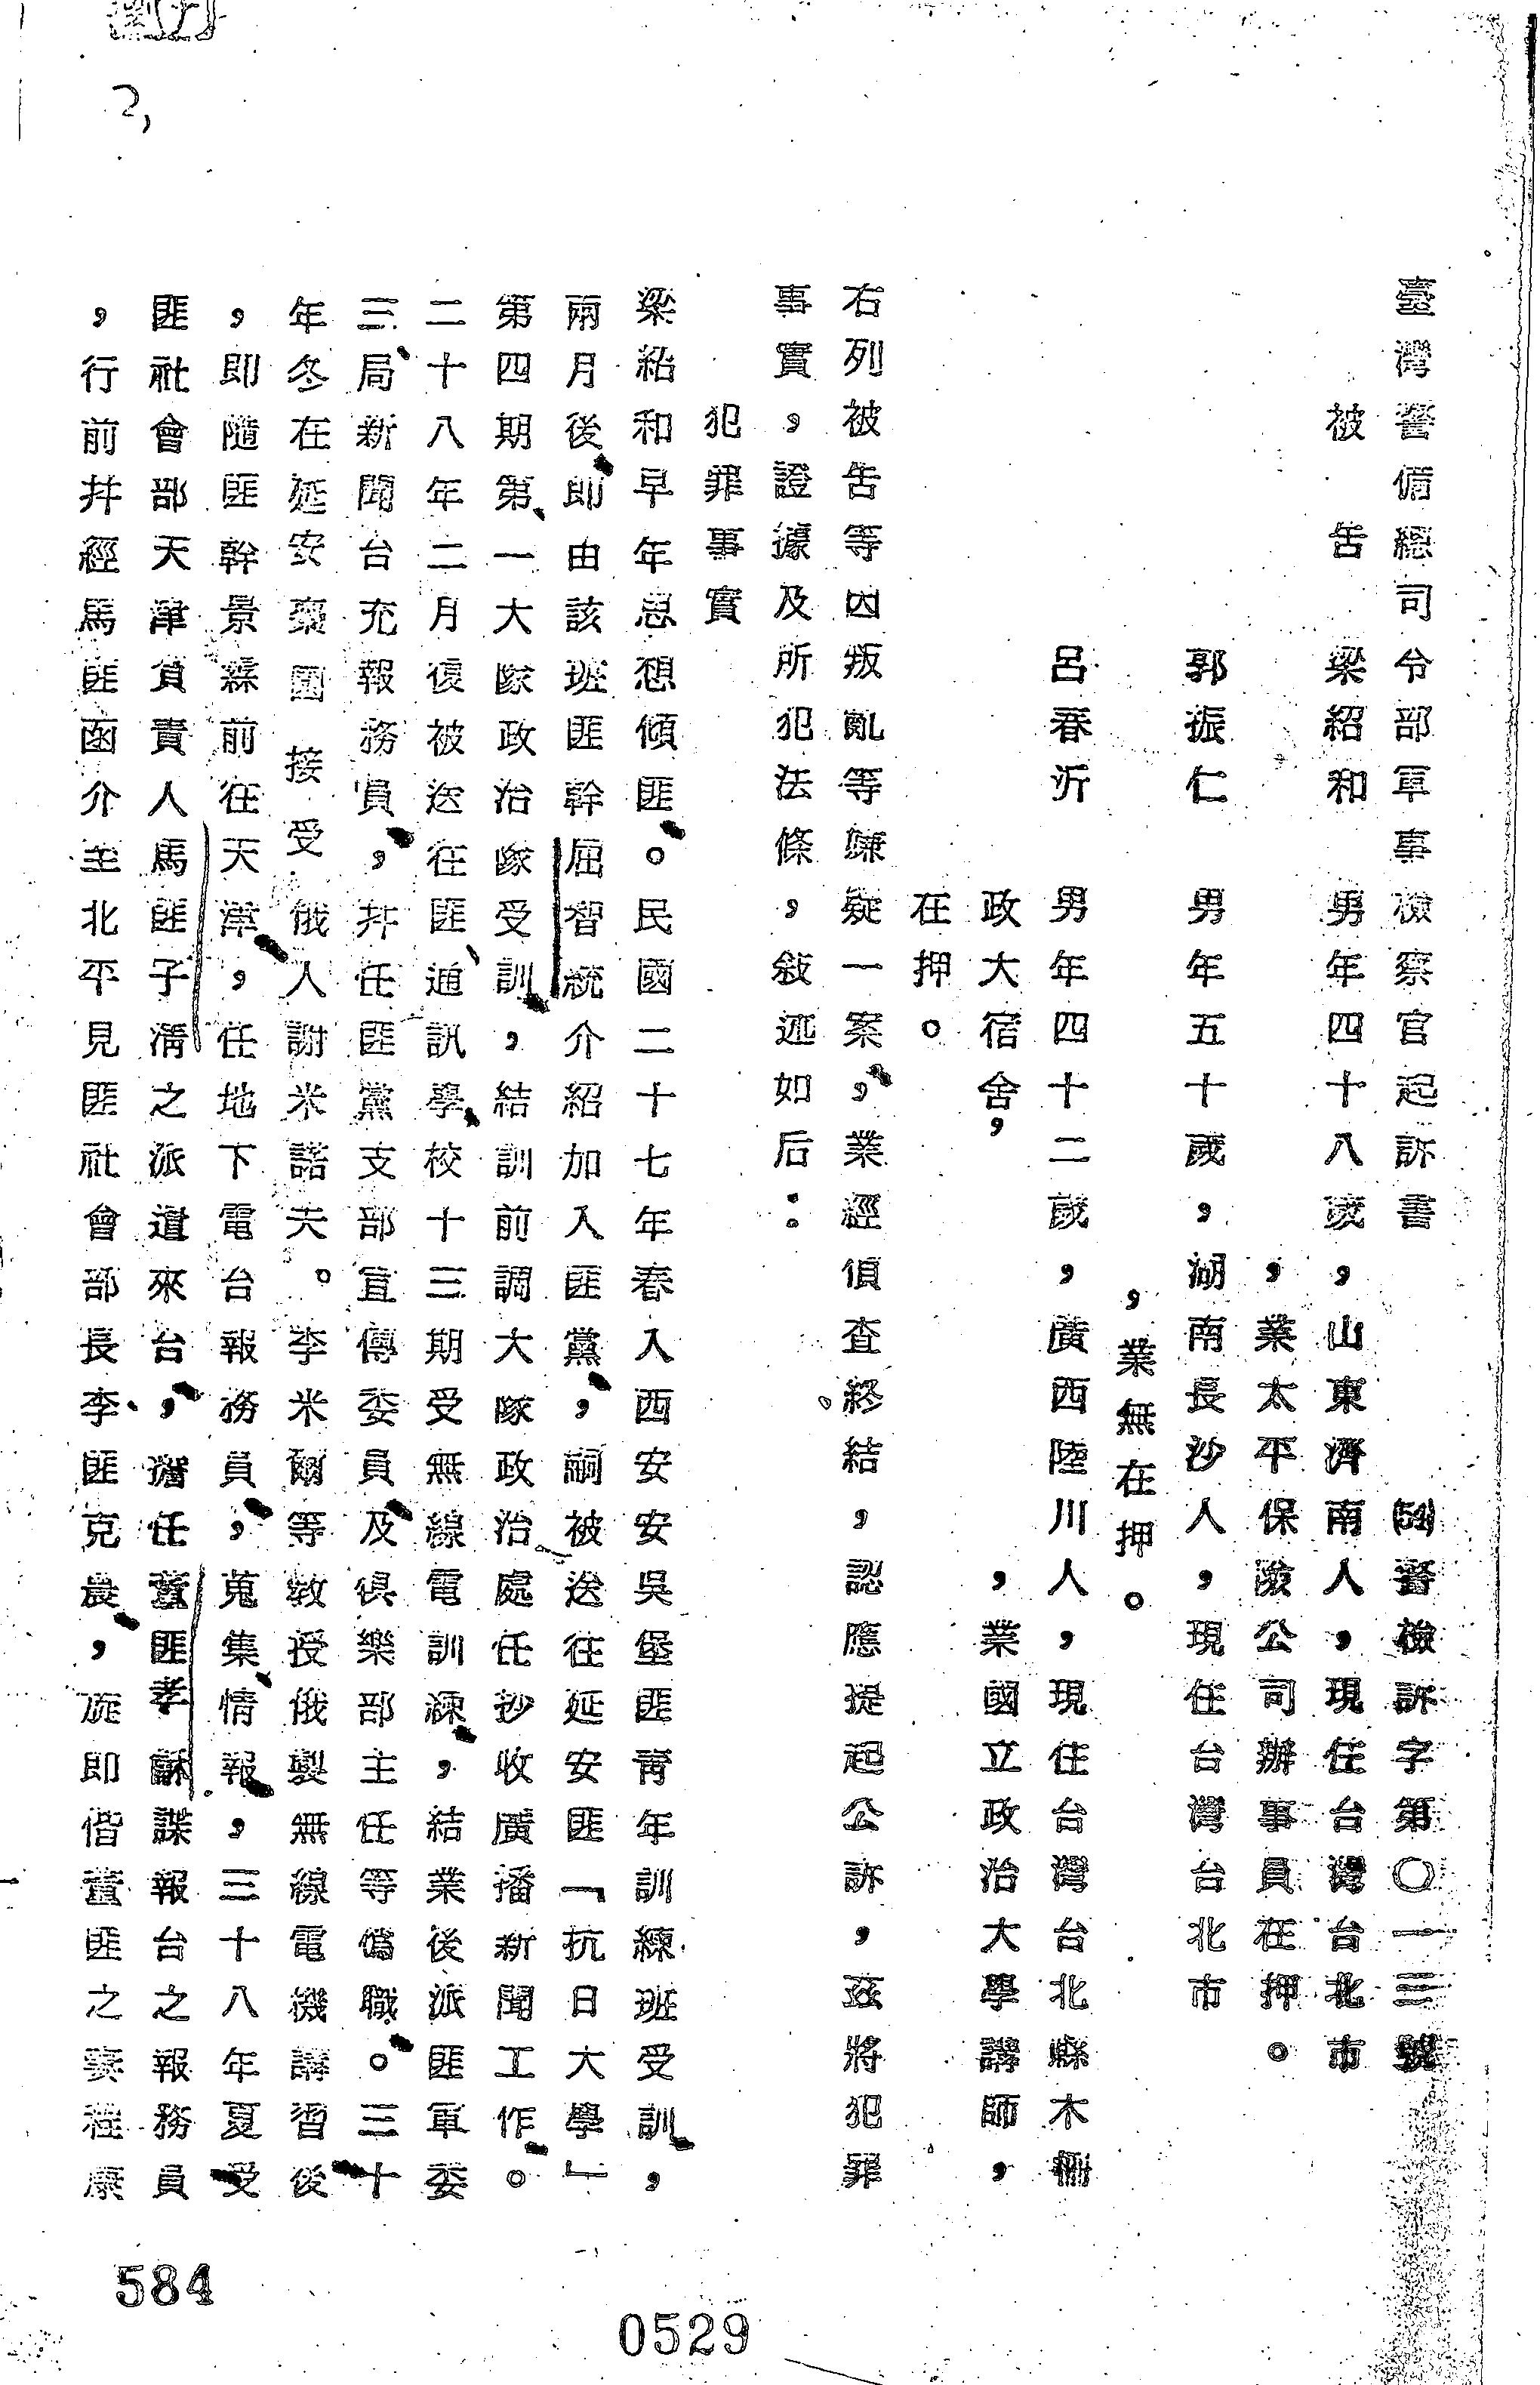 臺灣警備總司令部軍事檢察官起訴書　(54)警檢訴字第〇一三號
被告　梁紹和　男年四十八歲，山東濟南人，現住台灣台北市
，業太平保險公司辦事員在押。
郭振仁　男年五十歲，湖南長沙人，現住台灣台北市
，業無在押。
呂春沂　男年四十二歲，廣西陸川人，現住台灣台北縣木柵
政大宿舍，　，業國立政治大學講師，
在押。
右列被告等因叛亂等嫌疑一案，業經偵查終結，認應提起公訴，茲將犯罪
事實，證據及所犯法條，敍述如后：
犯罪事實
梁紹和早年思想傾匪。民國二十七年春入西安安吳堡匪青年訓練班受訓，
兩月後即由該班匪幹屈智統介紹加入匪黨，嗣被送往延安匪「抗日大學」
第四期第一大隊政治隊受訓，結訓前調大隊政治處任抄收廣播新聞工作。
二十八年二月復被送往匪通訊學校十三期受無線電訓練，結業後派匪軍委
三局新聞台充報務員，并任匪黨支部宣傳委員及俱樂部主任等僞職。三十
年冬在延安棗園接受俄人謝米諾夫。李米爾等教授俄製無線電機講習後
，即隨匪幹景霖前往天津，任地下電台報務員，蒐集情報，三十八年夏受
匪社會部天津負責人馬匪子清之派遣來台，擔任董匪孝穌諜報台之報務員
，行前并經馬匪函介至北平見匪社會部長李匪克農，旋即偕董匪之妻程康
2,
584
0529